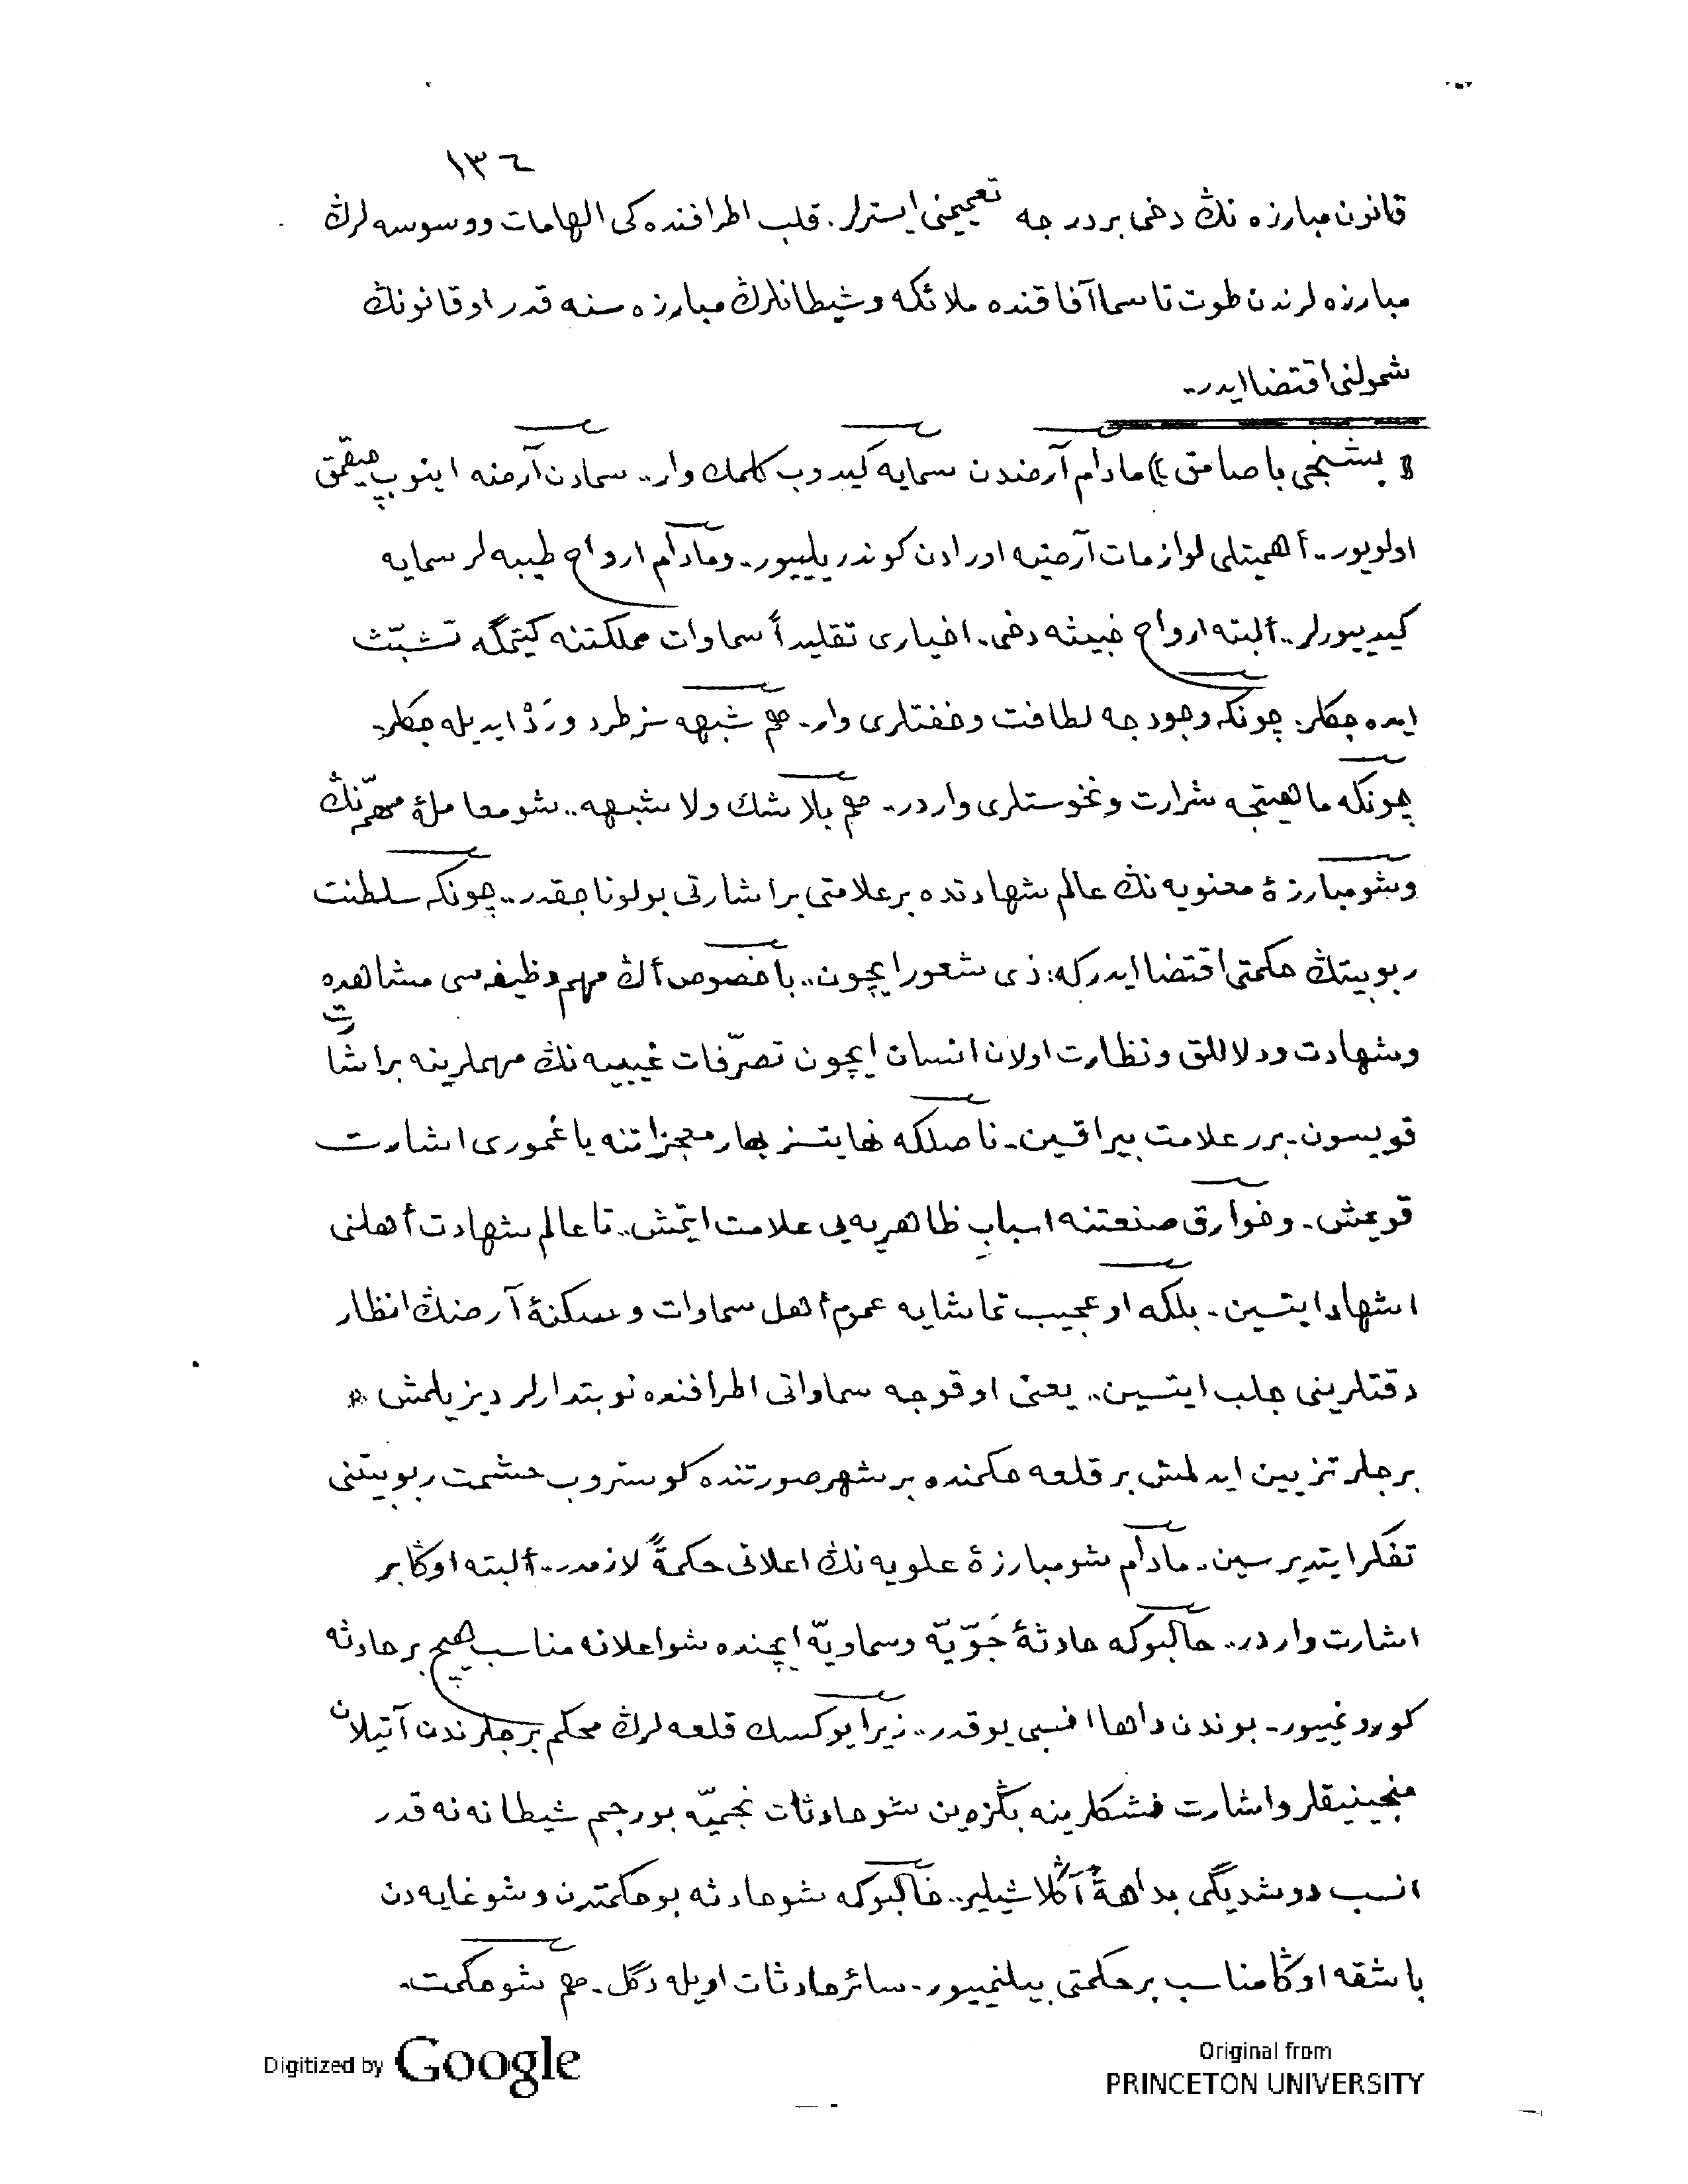 ١٣٦
قانون مبارزه نڭ دخی بر درجه تعمیمنی ایسترلر. قلب اطرافنده کی الهامات و وسوسه لرڭ
مبارزه لرندن طوت تا سما آفاقنده ملائکه و شیطانلرڭ مبارزه سنه قدر او قانونڭ
شمولنی اقتضا ایدر..
بشنجی باصامق ﴾ مادام آرضدن سمایه کیدوب کلمك وار.. سمادن آرضه اینوب چیقمق
اولویور.. أهمیتلی لوازمات آرضیه اورادن کوندریلییور.. ومادام ارواح طیبه لر سمایه
کیدییورلر.. ألبته ارواح خبیثه دخی. اخیاری تقلیداً سماوات مملکتنه کیتمگه تشبّث
ایده جکلر. چونکه وجودجه لطافت و خفتلری وار. هم شبهه سز طرد و رَدْ ایدیله جکلر.
چونکه ماهیتجه شرارت و نحوستلری واردر.. هم بلا شك ولا شبهه.. شو معاملهٔ مهمّه نڭ
و شو مبارزهٔ معنویه نڭ عالم شهادتده بر علامتی بر اشارتی بولوناجقدر.. چونکه سلطنت
ربوبیتڭ حکمتی اقتضا ایدر که: ذی شعور ایچون.. باخصوص أڭ مهم وظیفه سی مشاهده
و شهادت و دلاللق و نظارت اولان انسان ایچون تصرّفات غیبیه نڭ مهملرینه بر اشارت
قویسون. برر علامت بیراقسین. ناصلکه نهایتسز بهار معجزاتنه یاغموری اشارت
قویمش. و خوارق صنعتنه اسبابِ ظاهریه یی علامت ایتمش.. تا عالم شهادت أهلنی
اشهاد ایتسین. بلکه او عجیب تماشایه عموم أهل سماوات و سکنهٔ آرضڭ انظار
دقتلرینی جلب ایتسین.. یعنی او قوجه سماواتی اطرافنده نوبتدارلر دیزیلمش
برجلر تزیین ایدلمش بر قلعه حکمنده بر شهر صورتنده کوستروب حشمت ربوبیتنی
تفکر ایتدیرسین. مادام شو مبارزهٔ علویه نڭ اعلانی حکمةً لازمدر.. ألبته اوڭا بر
اشارت واردر.. حالبوکه حادثهٔ جَوّیّه و سماویّه ایچنده شو اعلانه مناسب هیچ بر حادثه
کورونمییور. بوندن داها انسبی یوقدر.. زیرا یوکسك قلعه لرڭ محکم برجلرندن آتیلان
منجنیقلر و اشارت فشنکلرینه بڭزه ین شو حادثات نجمیّه بو رجم شیطانه نه قدر
انسب دوشدیگی بداهةً آڭلاشیلیر.. حالبوکه شو حادثه بو حکمتدن و شو غایه دن
باشقه اوڭا مناسب بر حکمتی بیلنمییور. سائر حادثات اویله دگل. هم شو حکمت.
Digitized by Google
Original from
PRINCETON UNIVERSITY